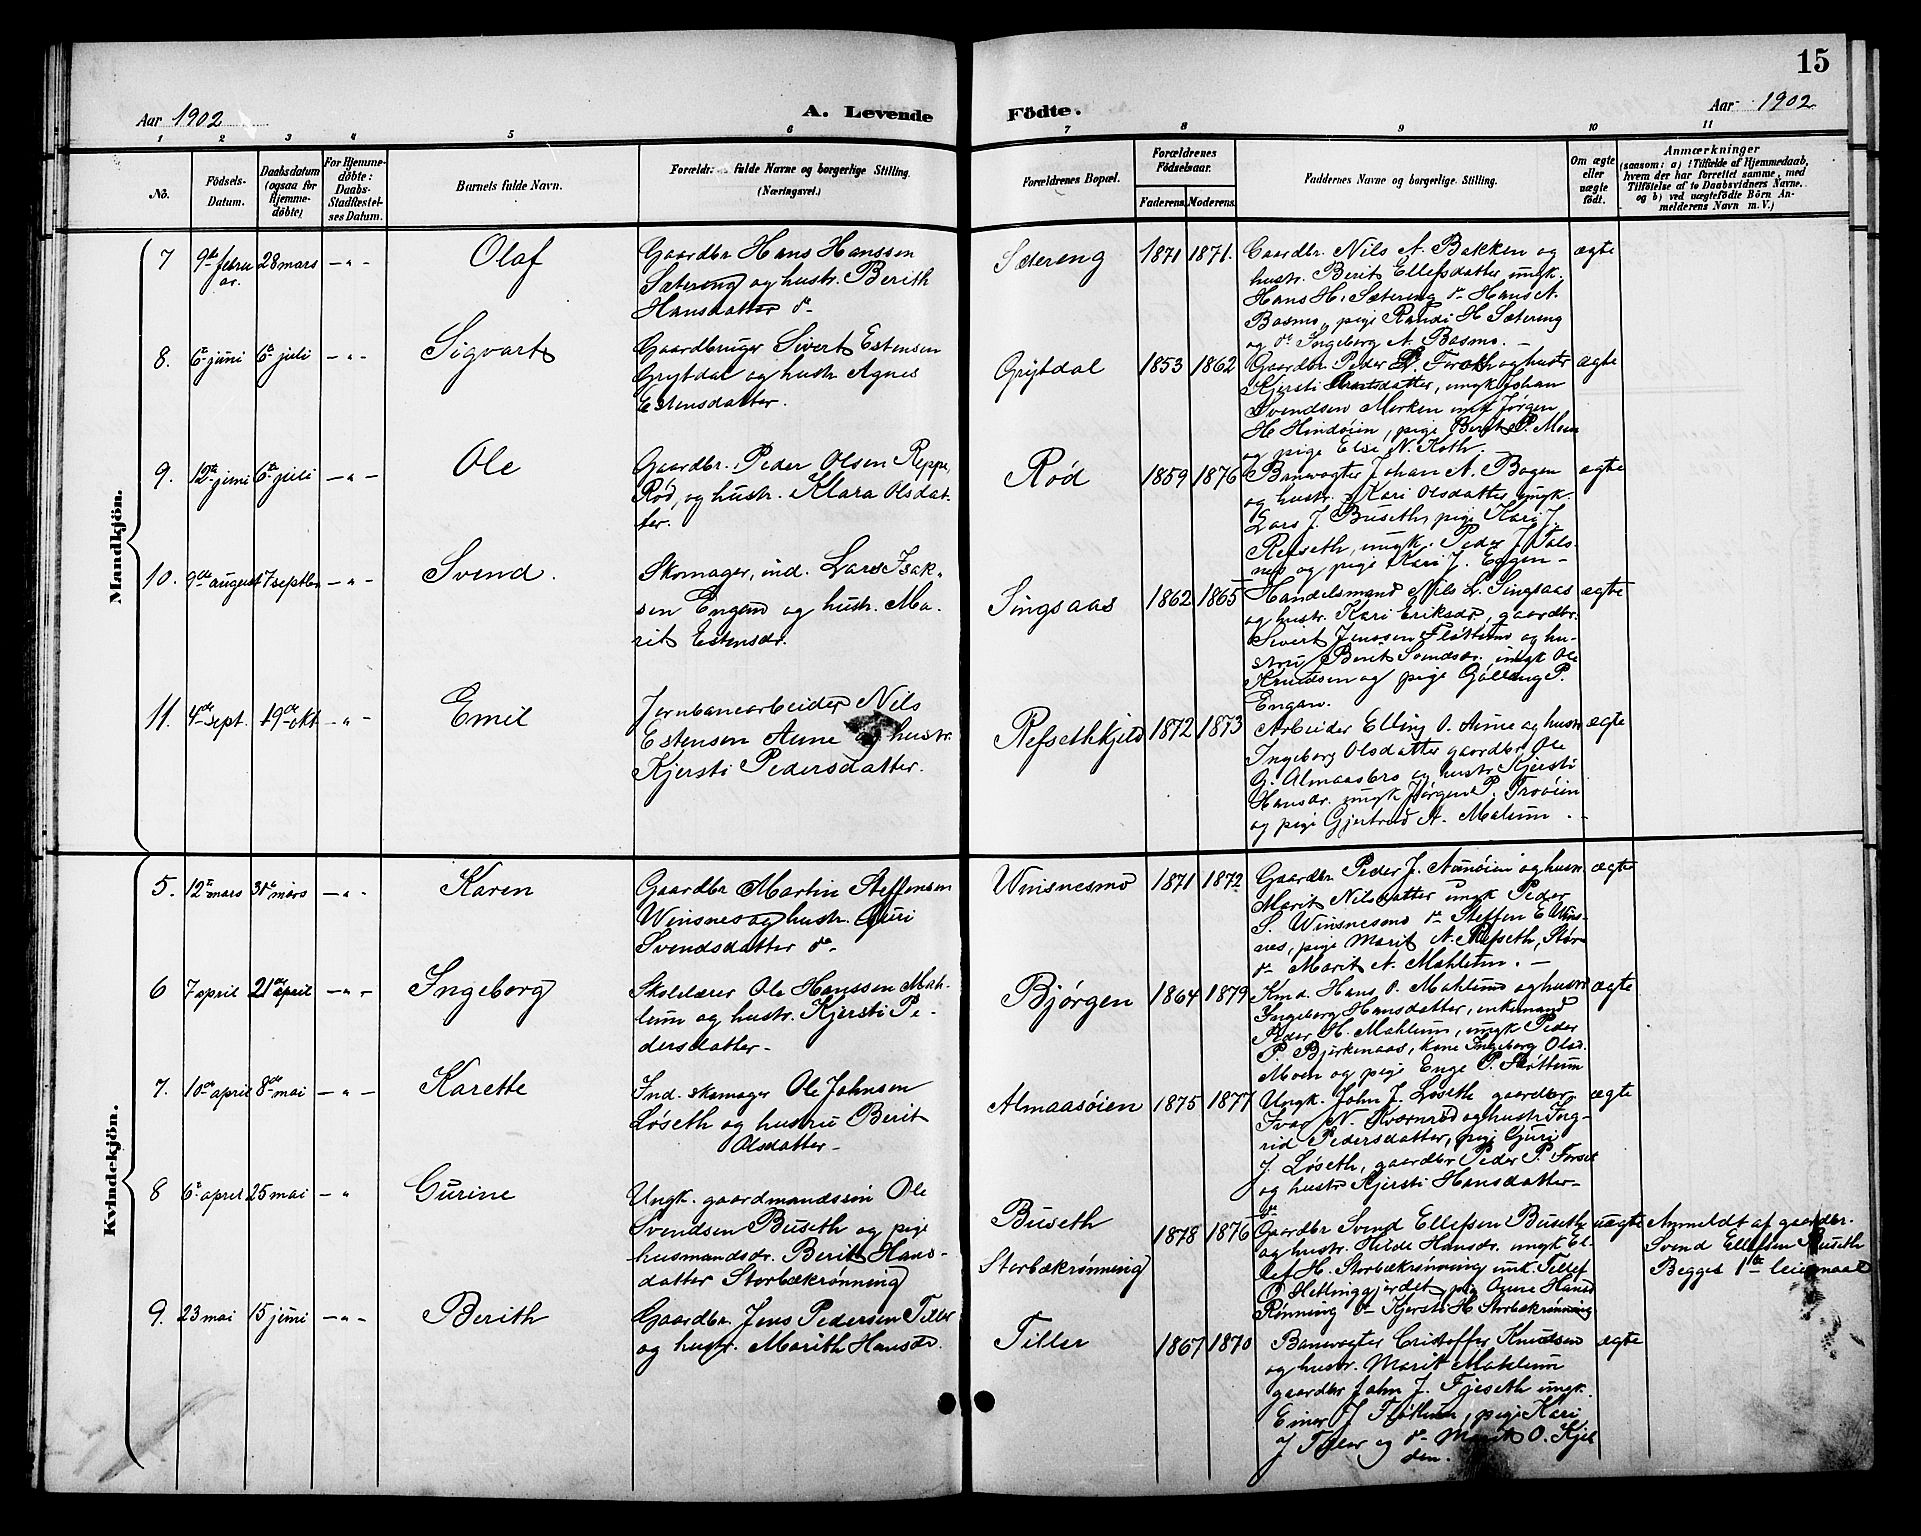 15
Aar 1902
A. Levende
Födte.
Aar 1902
1 2 3 4 5 6 7 8 9 10 11
No.
Födsels-
Datum.
Daabsdatum
(ogsaa for
Hjemme-
døbte)
For Hjemme-
döbte:
Daabs-
Stadfæstel-
ses Datum.
Barnets fulde Navn.
fulde Navne og borgerlige Stilling.
(Næringsvei.)
Forældrenes Bopæl.
Forældrenes
Fødselsaar.
Faderens. Moderens.
Faddernes Navne og borgerlige Stilling.
Om ægte
eller
uægte
födt.
Anmærkninger
(saasom: a) i Tilfælde af Hjemmedaab,
hvem der har forrettet samme, med
Tilföielse af to Daabsvidners Navne.
og b) ved uægtefödte Börn An-
melderens Navn m. V.)
Mandkjön.
7
9de febru
ar.
28 mars
– " -
Olaf
Gaardbr Hans Hanssen
Sætereng og hustr. Berith
Hansdatter ds
Sætereng
1871 1871.
Gaardbr Nils A. Bakken og
hustr. Berit Ellefsdatter ungk.
Hans H. Sætereng ds Hans A.
Basmo, pige Randi H Sætereng
og ds Ingeborg A. Basmo. –
ægte
8.
6te juni
6te juli
– " -
Sigvart
Gaardbruger Sivert Estensen
Grytdal og hustr Agnes
Estensdatter.
Grytdal
1853 1862
Gaardbr Peder Forøth og hustr
Kjersti datter, ungk Johan
Svendsen Morken ungk Jørgen
H Hindøien, pige Berit P. Moen
og pige Else N. Koth.
ægte
9.
12te juni
6te juli
– " –
Ole
Gaardbr. Peder Olsen Reppe,
Rød, og hustr. Klara Olsdat-
ter.
Rød
1859 1876
Banevogter Johan A. Bogen
og hustr. Kari Olsdatter ungk.
Lars J. Buseth, pige Kari J.
Refseth, ungk. Peder J Vols-
nes og pige Kari J. Eggen –
ægte
10.
9de august
7 septbr
– " –
Svend.
Skomager, ind. Lars Isak-
sen Engan og hustr. Ma-
rit Estensdr.
Singsaas
1862 1865
Handelsmand Nils L. Singsaas
og hustr. Kari Eriksdr, gaardbr.
Sivert Jenssen Fløttum og hu-
stru Berit Svendsdr. ungk Ole
Knudsen og pige Gølling P.
Engan.
ægte
11.
4de sept.
19de okt
– " –
Emil
Jernbanearbeider Nils
Estensen Aune og hustr.
Kjersti Pedersdatter.
Refsethkjeld
1872 1873
Arbeider Elling O. Aune og hustr
Ingeborg Olsdatter gaardbr Ole
G. Almaasbro og hustr Kjersti
Hansdr. ungk Jørgen P. Trøøien
og pige Gjertrud A. Malum. –
ægte
Kvindekjön.
5.
12te mars
31te mars
– " -
Karen
Gaardbr Martin Steffensen
Winsnes og hustr. Guri
Svendsdatter ds
Winsnesmo
1871 1872
Gaardbr Peder J. Aunøien og hustr
Marit Nilsdatter ungk Peder
S. Winsnesmo ds Steffen E Wins-
nes, pige Marit A. Refseth, Stør
ds Marit A. Mahlum. –
ægte
6
7 april
21de april
– " –
Ingeborg
Skolelærer Ole Hanssen Mah-
lum og hustr. Kjersti Pe-
dersdatter –
Bjørgen
1864 1879
Kmd. Hans O. Mahlum og hustr
Ingeborg Hansdatter, enkemand
Peder H. Mahlum, ungk Peder
P. Bjerkenaas, kone Ingeborg Olsd.
Moen og pige Enge P. Fløttum
ægte
7.
10de april
8de mai
– " –
Karette
Ind. skomager Ole Johnsen
Løseth og hustru Berit
Olsdatter –
Almaasøien
1875 1877
Ungk. John J. Løseth gaardbr
Ivar N. Kværnrød og hustr Ing-
rid Pedersdatter, pige Guri
J. Løseth, gaardbr Peder P. Forset
og hustr Kjersti Hansdatter –
ægte
8
6te april
25 mai
– "
Gurine
Ungk. gaardmandssøn Ole
Svendsen Buseth og pige
husmandsdr. Berit Hans-
datter Storbækrønning
Buseth
Storbækrønning
1878 1876
Gaardbr Svend Ellefsen Buseth
og hustr. Hilde Hansdr. ungk El-
lef H. Storbækrønning ungk. Tillef
O Hellinggjerdet pige Anne Hansd
Rønning ds Kjersti H Storbækrønning
uægte
Anmeldt af gaardbr.
Svend Ellefsen Buseth
Begges 1ste leiermaal
9.
23 mai
15 juni
– " -
Berith
Gaardbr. Jens Pedersen Tiller
og hustr. Marith Hansdr.
Tiller
1867 1870
Banevogter Cristoffer Knudsen
og hustr. Marit Mahlum
gaardbr John J. Fjeseth ungk.
Einar J Fløttum, pige Kari
J Tiller og ds Marit O. Kjel
den.
ægte